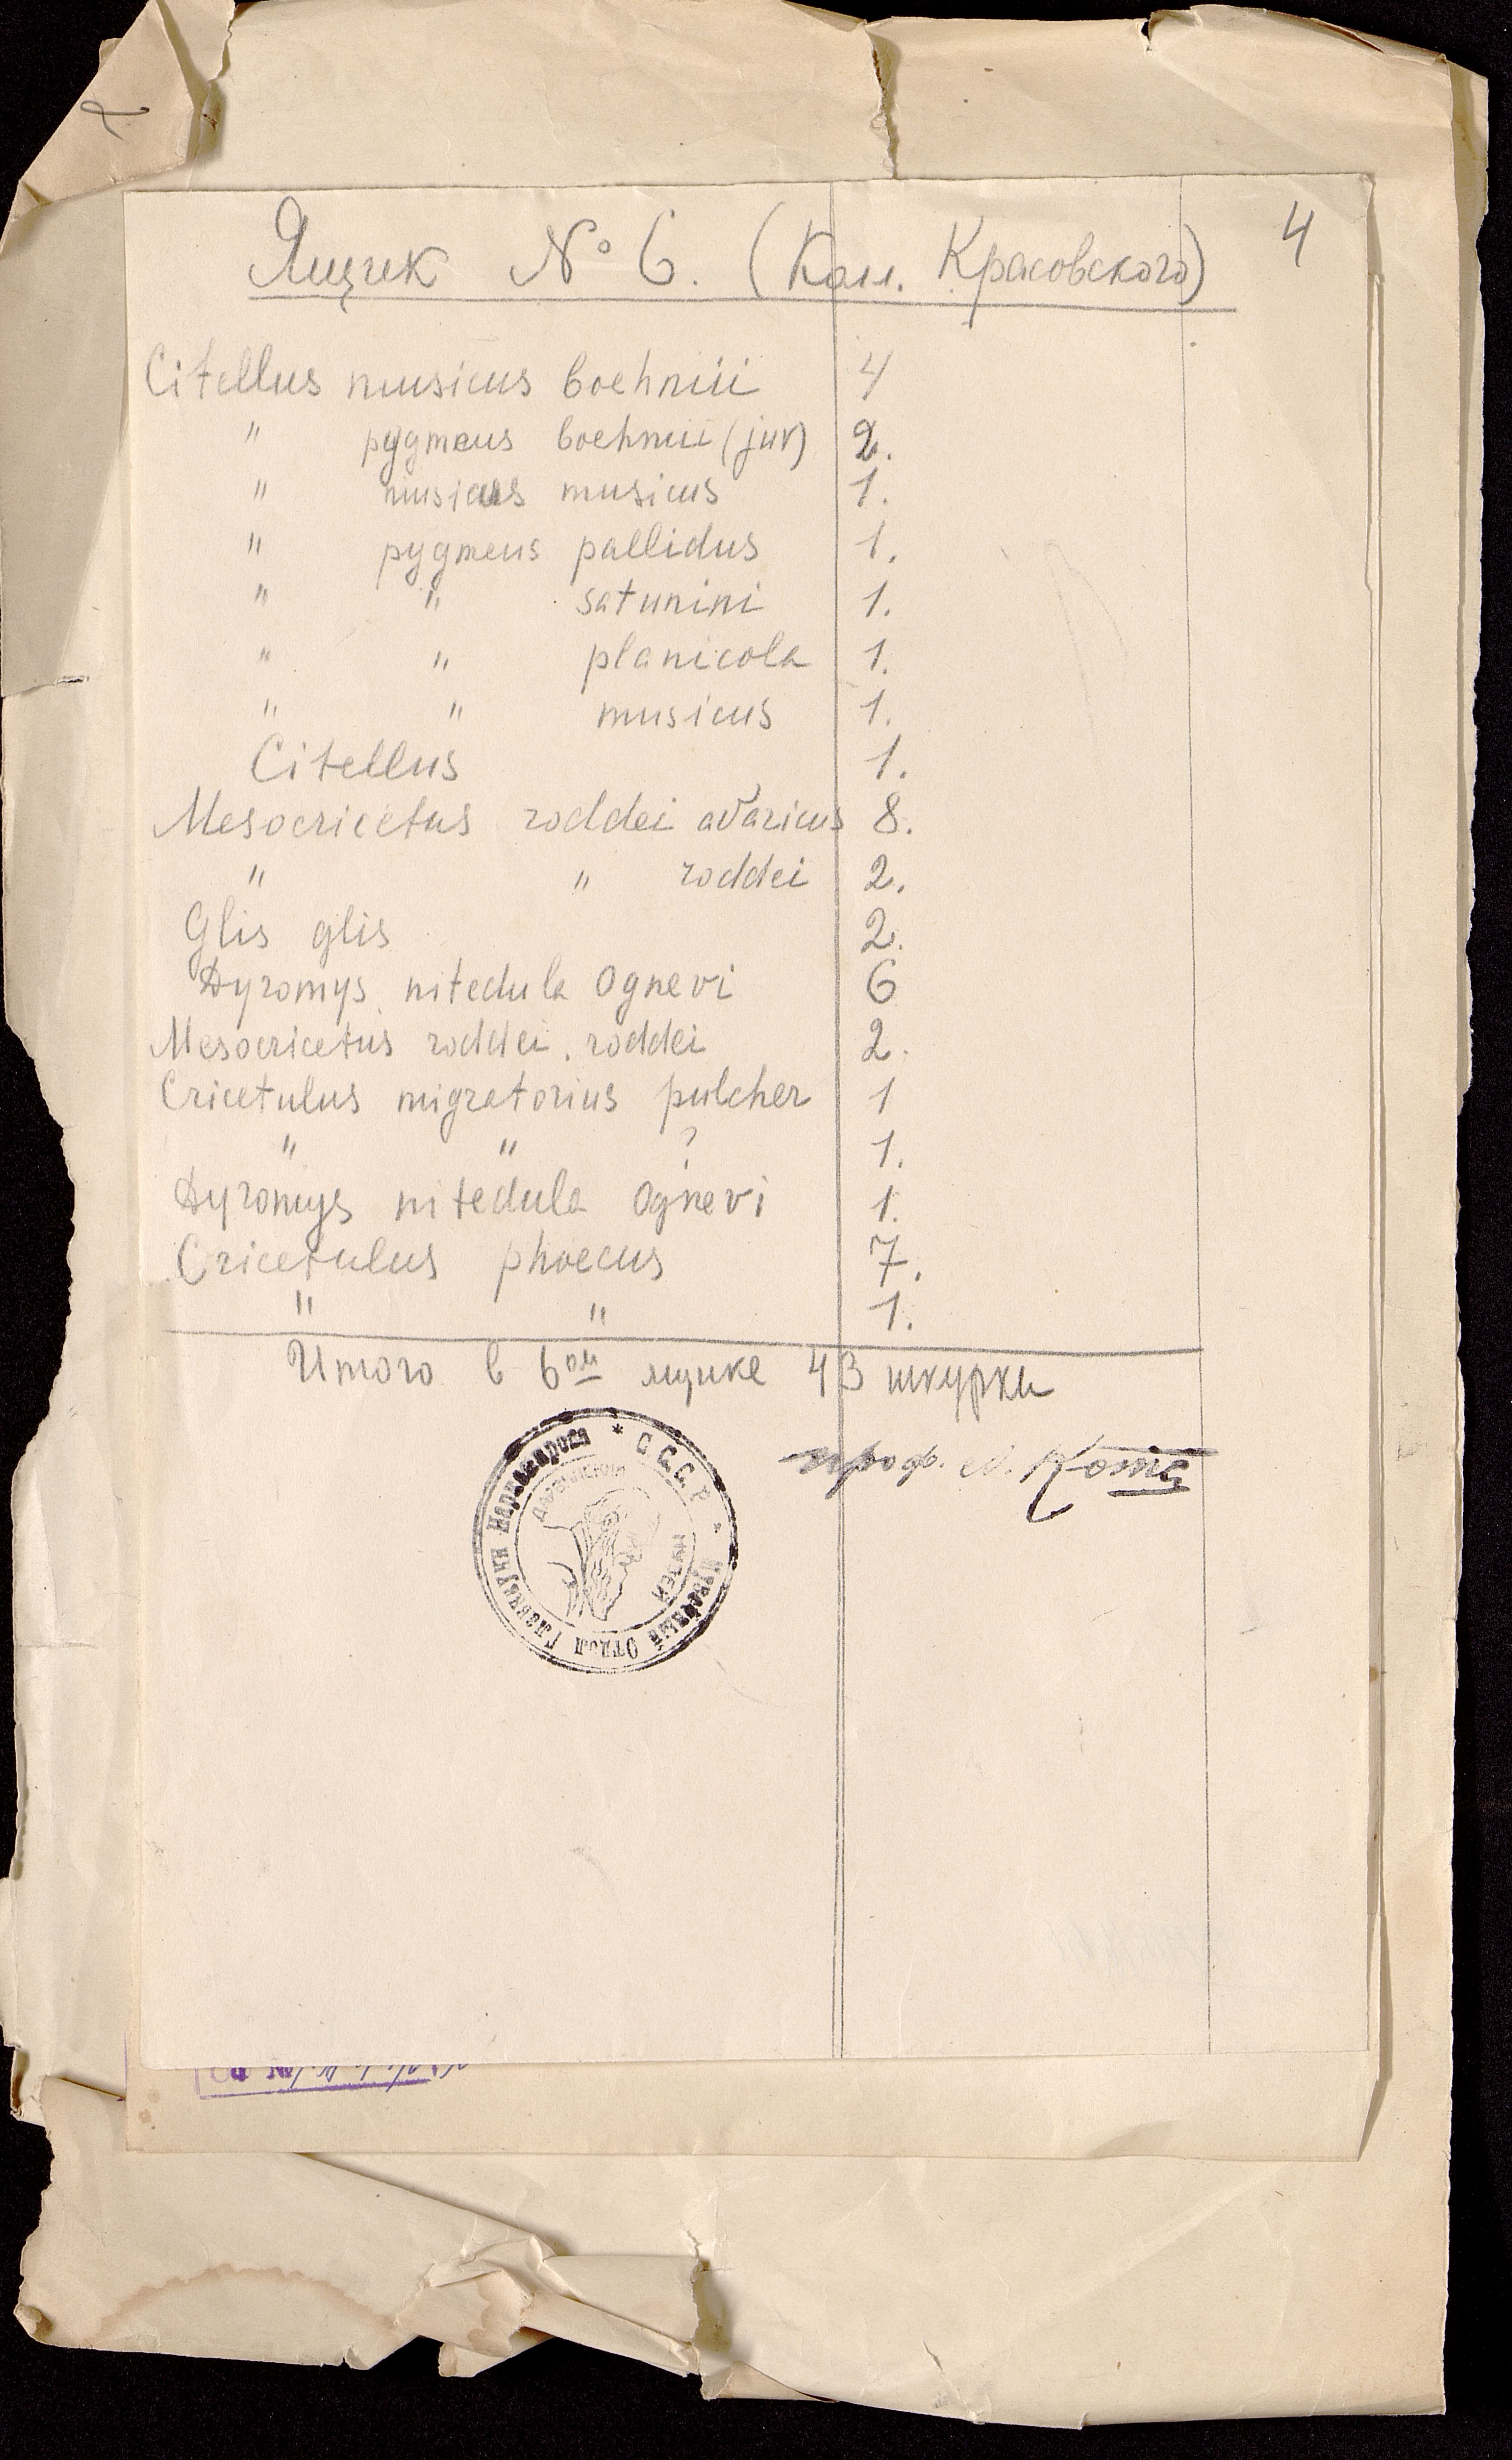 4
Ящик № 6. (Колл. Красовского)
Citellus musicus boehmii 4
" pygmeus boehmii (juv) 2.
" musicus musicus 1.
" pygmeus pallidus 1.
" " satunini 1.
" " planicola 1.
" " musicus 1.
Citellus 1.
Mesocricetus roddei avaricus 8.
" " roddei 2.
Glis glis 2.
Dyromys nitedula Ognevi 6
Mesocricetus roddei. roddei 2.
Cricetulus migratorius pulcher 1
" " ? 1.
Dyromys nitedula Ognevi 1.
Cricetulus phoecus 7.
" " 1.
Итого в 6ом ящике 43 шкурки
проф. А. Котс
* С.С.С.Р. * Музейный Отдел Главнауки Наркомпроса
Дарвинский Музей